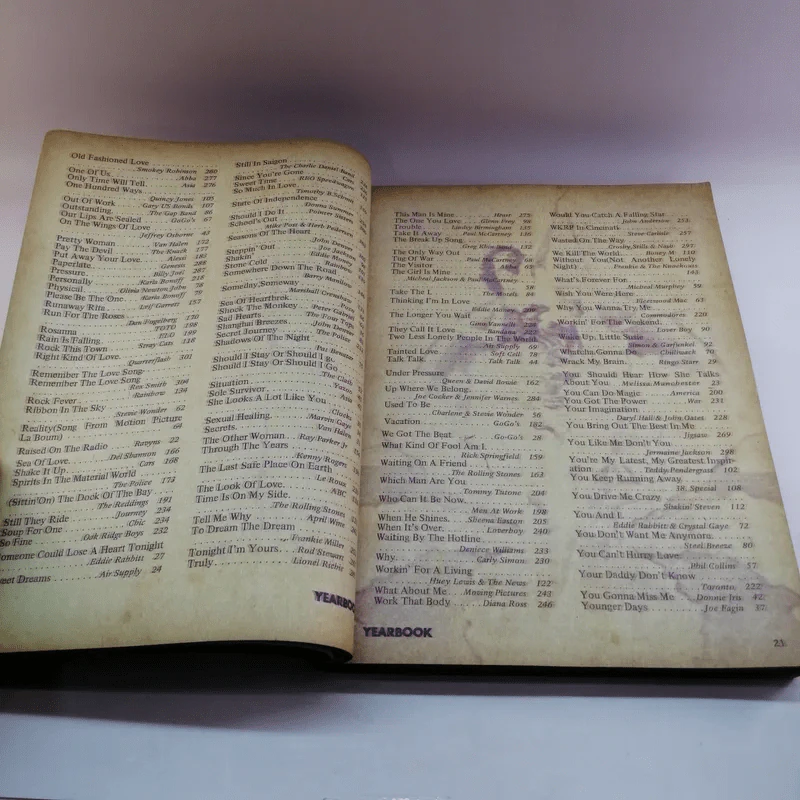 Old Fashioned Love
Smokey Robinson 280
One Of Us Abba 277
Only Time Will Tell Asia 276
One Hundred Ways
Quincy Jones 105
Out Of Work Gary US Bonds 107
Outstanding The Gap Band 86
Our Lips Are Sealed GoGo's 67
On The Wings Of Love
Jeffrey Osborne 43
Pretty Woman Van Halen 172
Pay The Devil The Knack 177
Put Away Your Love Alessi 185
Paperlate Genesis 288
Pressure Billy Joel 287
Personally Karla Bonoff 218
Physical Olivia Newton John 78
Please Be The One Karla Bonoff
Runaway Rita Leif Garrett 157
Run For The Roses
Dan Fogelberg 170
Rosanna TOTO 198
Rain Is Falling ELO 199
Rock This Town Stray Cats 116
Right Kind Of Love
Quarterflash 301
Remember The Love Song
Remember The Love Song
Rex Smith 304
Rock Fever Rainbow 134
Ribbon In The Sky
Stevie Wonder 62
Reality(Song From Motion Picture
La Boum) 64
Raised On The Radio Ravyns 22
Sea Of Love Del Shannon 166
Shake It Up Cars 168
Spirits In The Material World
The Police 173
(Sittin'On) The Dock Of The Bay
The Reddings 191
Still They Ride Journey 234
Soup For One Chic 234
So Fine Oak Ridge Boys 232
Someone Could Lose A Heart Tonight
Eddie Rabbitt 27
Sweet Dreams Air Supply 24
Still In Saigon
The Charlie Daniel Band
Since You're Gone
Sweet Time REO Speedwagon
So Much In Love
Timothy B.
State Of Independence
Donna Summer
Should I Do It Pointer Sisters
School's Out
Mike Post & Herb Pedersen
Seasons Of The Heart
John Denver
Steppin' Out Joe Jackson
Shakin' Eddie Money
Stone Cold Rainbow
Somewhere Down The Road
Barry Manilow
Someday, Someway
Marshall Crenshaw
Sea Of Heartbreak
Shock The Monkey Peter Gabriel
Sad Hearts The Four Tops
Shanghai Breezes John Denver
Secret Journey The Police
Shadows Of The Night
Pat Benatar
Should I Stay Or Should I go
Should I Stay Or Should I Go
The Clash
Situation Yazoo
Sole Survivor Asia
She Looks A Lot Like You
Clocks
Sexual Healing Marvin Gaye
Secrets Van Halen
The Other Woman Ray Parker Jr
Through The Years
Kenny Rogers
The Last Safe Place On Earth
Le Roux
The Look Of Love ABC
Time Is On My Side
The Rolling Stones
Tell Me Why April Wine
To Dream The Dream
Frankie Miller
Tonight I'm Yours Rod Stewart
Truly Lionel Richie
YEARBOO
This Man Is Mine Heart 275
The One You Love Glenn Frey 98
Trouble Lindsey Birmingham 135
Take It Away Paul McCartney 136
The Break Up Song
Greg Kihn Band 132
The Only Way Out
Tug Of War Paul McCartney
The Visitor 65
The Girl Is Mine
Micheal Jackson & Paul McCartney
Take The L The Motels 84
Thinking I'm In Love
Eddie Money
The Longer You Wait
Gino Vannelli 228
They Call It Love Bandana 227
Two Less Lonely People In The World
Air Supply 69
Tainted Love Soft Cell 78
Talk Talk Talk Talk 44
Under Pressure
Queen & David Bowie 162
Up Where We Belong
Joe Cocker & Jennifer Warnes 284
Used To Be
Charlene & Stevie Wonder 56
Vacation GoGo's 182
We Got The Beat GoGo's 28
What Kind Of Fool Am I
Rick Springfield 159
Waiting On A Friend
The Rolling Stones 163
Which Man Are You
Tommy Tutone 204
Who Can It Be Now
Men At Work 198
When He Shines Sheena Easton 205
When It's Over Loverboy 240
Waiting By The Hotline
Deniece Williams 233
Why Carly Simon 230
Workin' For A Living
Huey Lewis & The News 122
What About Me Moving Pictures 243
Work That Body Diana Ross 246
YEARBOOK
Would You Catch A Falling Star
John Anderson 253
WKRP In Cincinnati
Steve Carlisle 257
Wasted On The Way
Crosby, Stills & Nash 297
We Kill The World Boney M 110
Without You(Not Another Lonely
Night) Frankie & The Knockouts
145
What's Forever For
Micheal Murphey 59
Wish You Were Here
Fleetwood Mac 63
Why You Wanna Try Me
Commodores 220
Workin' For The Weekend
Lover Boy 90
Wake Up, Little Susie
Simon & Garfunkel 92
Whatcha Gonna Do Chilliwack 70
Wrack My Brain Ringo Starr 29
You Should Hear How She Talks
About You Melissa Manchester 23
You Can Do Magic America 200
You Got The Power War 231
Your Imagination
Daryl Hall & John Oates 228
You Bring Out The Best In Me
Jigsaw 269
You Like Me Don't You
Jermaine Jackson 298
You're My Latest, My Greatest Inspir-
ation Teddy Pendergrass 102
You Keep Running Away
38 Special 108
You Drive Me Crazy
Shakin' Steven 112
You And I
Eddie Rabbitt & Crystal Gaye 72
You Don't Want Me Anymore
Steel Breeze 80
You Can't Hurry Love
Phil Collins 57
Your Daddy Don't Know
Toronto 222
You Gonna Miss Me Donnie Iris 42
Younger Days Joe Fagin 37